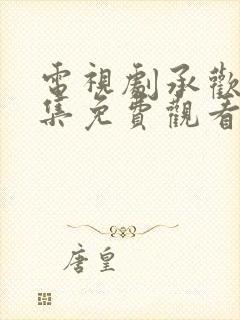 電視劇承歡
集免費觀看
唐皇